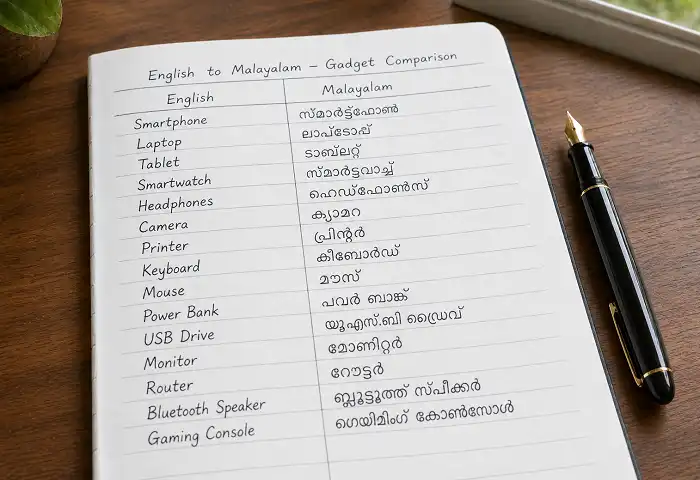 English to Malayalam – Gadget Comparison
English Malayalam
Smartphone സ്മാർട്ട്ഫോൺ
Laptop ലാപ്ടോപ്പ്
Tablet ടാബ്‌ലറ്റ്
Smartwatch സ്മാർട്ടവാച്ച്
Headphones ഹെഡ്ഫോൺസ്
Camera ക്യാമറ
Printer പ്രിന്റർ
Keyboard കീബോർഡ്
Mouse മൗസ്
Power Bank പവർ ബാങ്ക്
USB Drive യൂഎസ്.ബി ഡ്രൈവ്
Monitor മോണിറ്റർ
Router റൗട്ടർ
Bluetooth Speaker ബ്ലൂട്ടൂത്ത് സ്പീക്കർ
Gaming Console ഗെയിമിംഗ് കോൺസോൾ